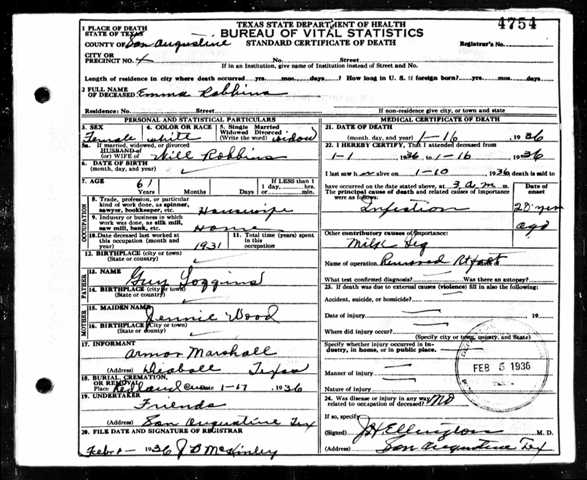 TEXAS STATE DEPARTMENT OF HEALTH
BUREAU OF VITAL STATISTICS
STANDARD CERTIFICATE OF DEATH
4754
1 PLACE OF DEATH
STATE OF TEXAS
COUNTY OF San Augustine
Registrar's No.
CITY OR
PRECINCT No. Street
If in an Institution, give name of Institution instead of Street and No.
Length of residence in city where death occurred yrs. mos. days. ? How long in U. S. if foreign born? yrs. mos. days.
2 FULL NAME
OF DECEASED Emma Robbins
Residence: No. Street
If non-residence give city, or town and state
PERSONAL AND STATISTICAL PARTICULARS
3. SEX Female
4. COLOR OR RACE white
5. Single Married
Widowed Divorced
(Write the word) widow
5a. If married, widowed, or divorced
HUSBAND of
(or) WIFE of Will Robbins
6. DATE OF BIRTH
(month, day, and year)
7. AGE 61 Years Months Days
If LESS than 1
day, hrs.
or min.
OCCUPATION
8. Trade, profession, or particular
kind of work done, as spinner,
sawyer, bookkeeper, etc. Housewife
9. Industry or business in which
work was done, as silk mill,
saw mill, bank, etc. Home
10. Date deceased last worked at
this occupation (month and
year) 1931
11. Total time (years)
spent in this
occupation
12. BIRTHPLACE (city or town)
(State or country)
FATHER
13. NAME Guy Loggins
14. BIRTHPLACE (city or town)
(State or country)
MOTHER
15. MAIDEN NAME Jennie Wood
16. BIRTHPLACE (city or town)
(State or country)
17. INFORMANT Armor Marshall
(Address) Diaboll Texas
18. BURIAL, CREMATION,
OR REMOVAL
Place Redland Date 1-17 1936
19. UNDERTAKER Friends
(Address) San Augustine Tex
20. FILE DATE AND SIGNATURE OF REGISTRAR
1936 J D McKinley
MEDICAL CERTIFICATE OF DEATH
21. DATE OF DEATH
(month, day, and year) 1-16 1936
22. I HEREBY CERTIFY, That I attended deceased from
1-1 1936 to 1-16 1936
I last saw h alive on 1-10 1936 death is said to
have occurred on the date stated above, at 3 a.m. m.
The principal cause of death and related causes of importance
were as follows:
Date of
onset
Other contributory causes of importance:
Milk leg
Name of operation Removed Rt foot
What test confirmed diagnosis? Was there an autopsy?
23. If death was due to external causes (violence) fill in also the following:
Accident, suicide, or homicide?
Date of injury 19
Where did injury occur?
(Specify city or town, county, and State)
Specify whether injury occurred in Industry, in home, or in public place.
Manner of injury
Nature of injury
FEB 5 1936
24. Was disease or injury in any way
related to occupation of deceased? no
If so, specify
(Signed) J H Ellington M. D.
(Address) San Augustine Tex